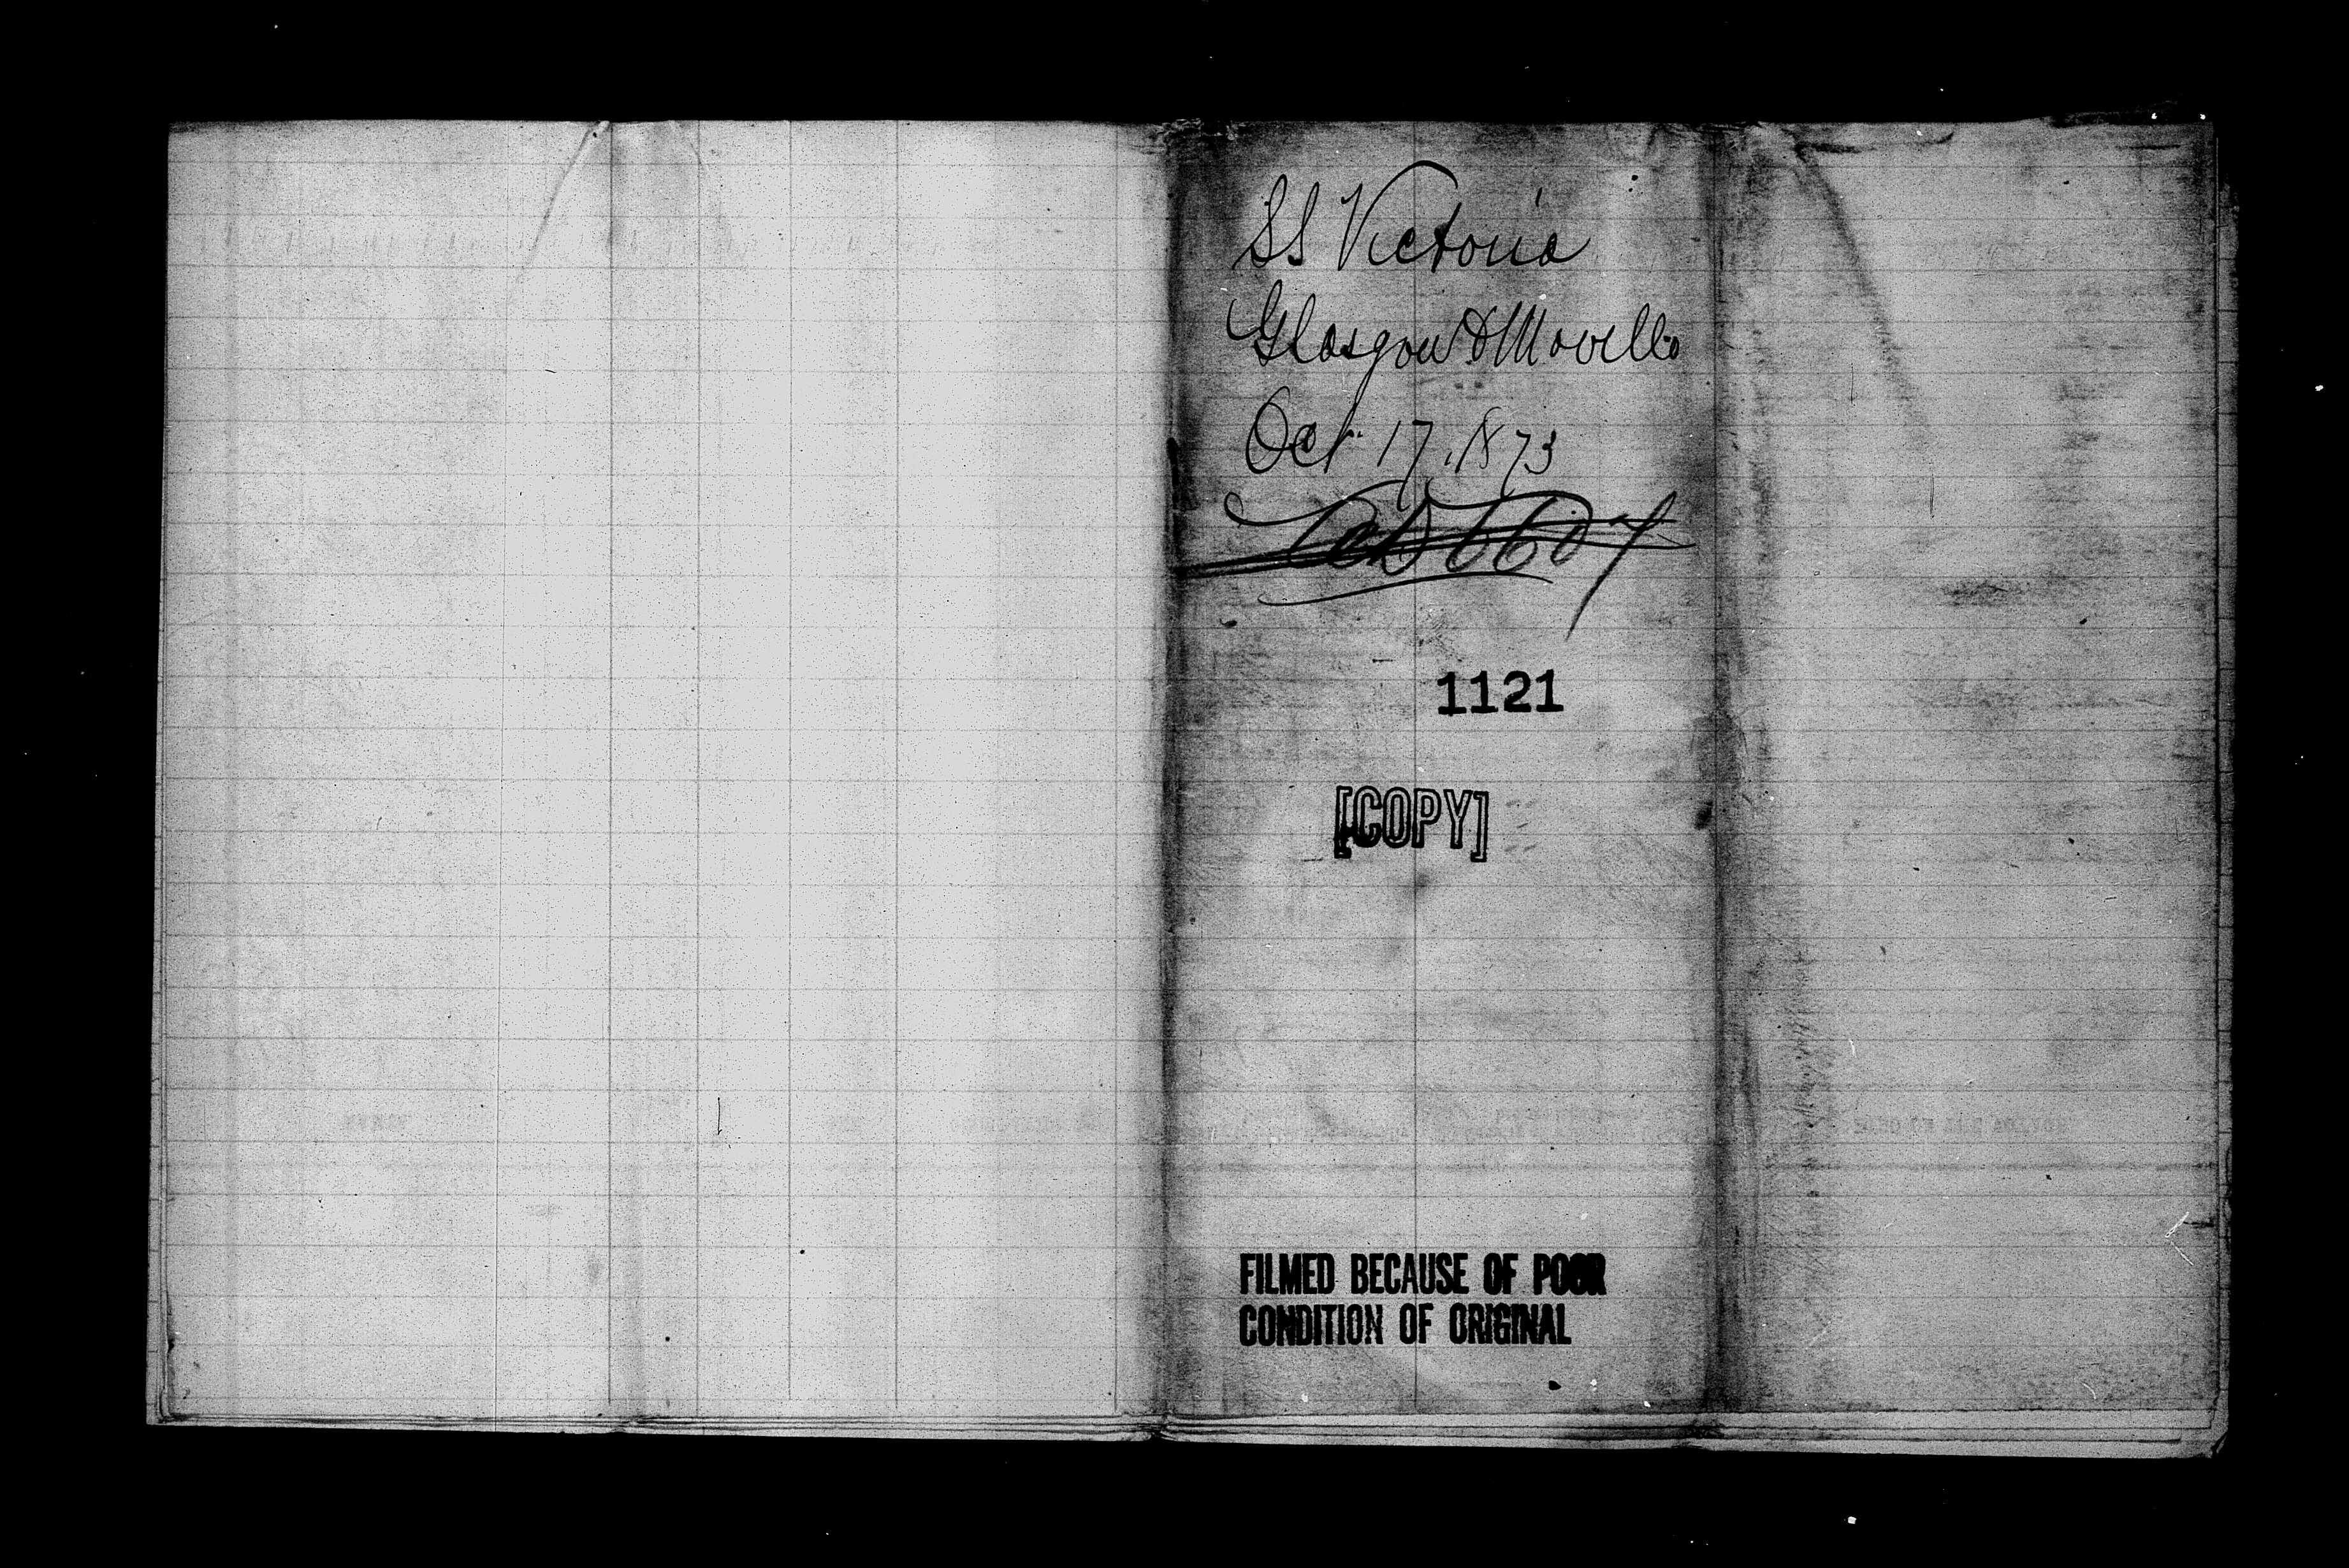 SS Victoria
Glasgow & Moville
Oct 17. 1873
1121
[COPY]
FILMED BECAUSE OF POOR
CONDITION OF ORIGINAL